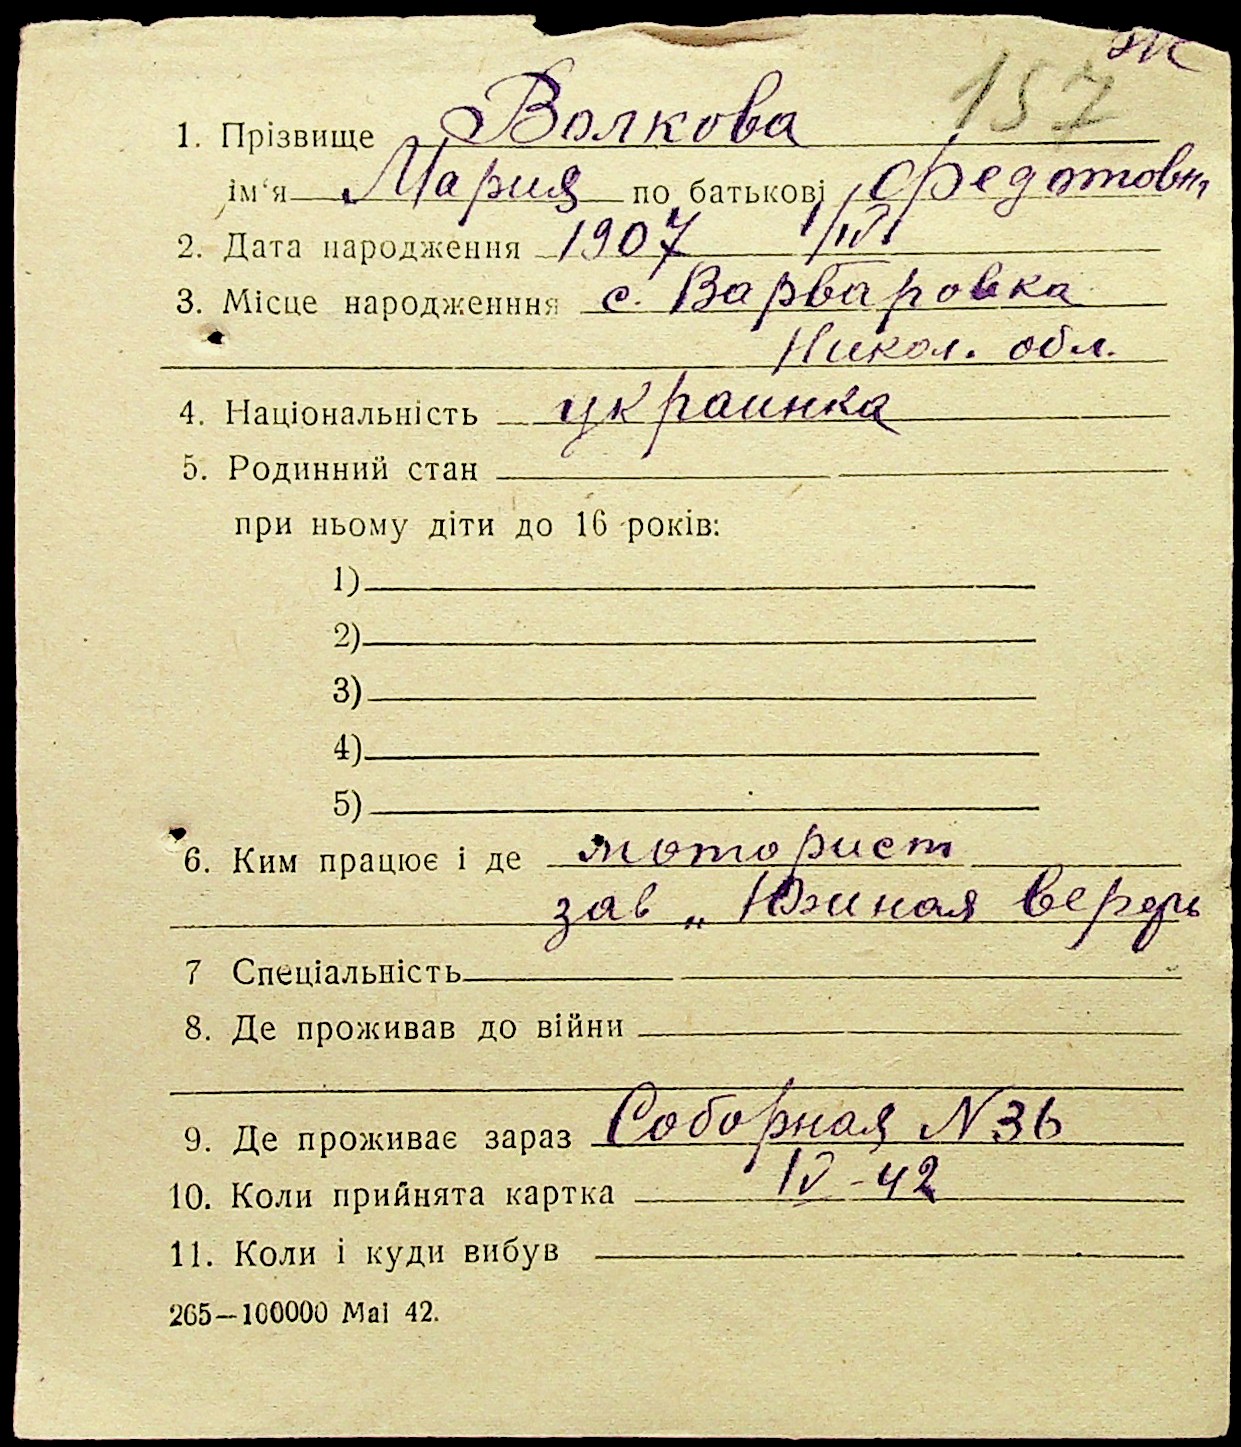 157
1. Прізвище Волкова
ім'я Мария по батькові Федотовн
2. Дата народження 1907 1/IV
3. Місце народженння с. Варваровка
Никол. обл.
4. Національність украинка
5. Родинний стан
при ньому діти до 16 років:
1)
2)
3)
4)
5)
6. Ким працює і де моторист
зав „Южная верфь
7 Спеціальність
8. Де проживав до війни
9. Де проживає зараз Соборная N 36
10. Коли прийнята картка IV-42
11. Коли і куди вибув
265—100000 Mai 42.